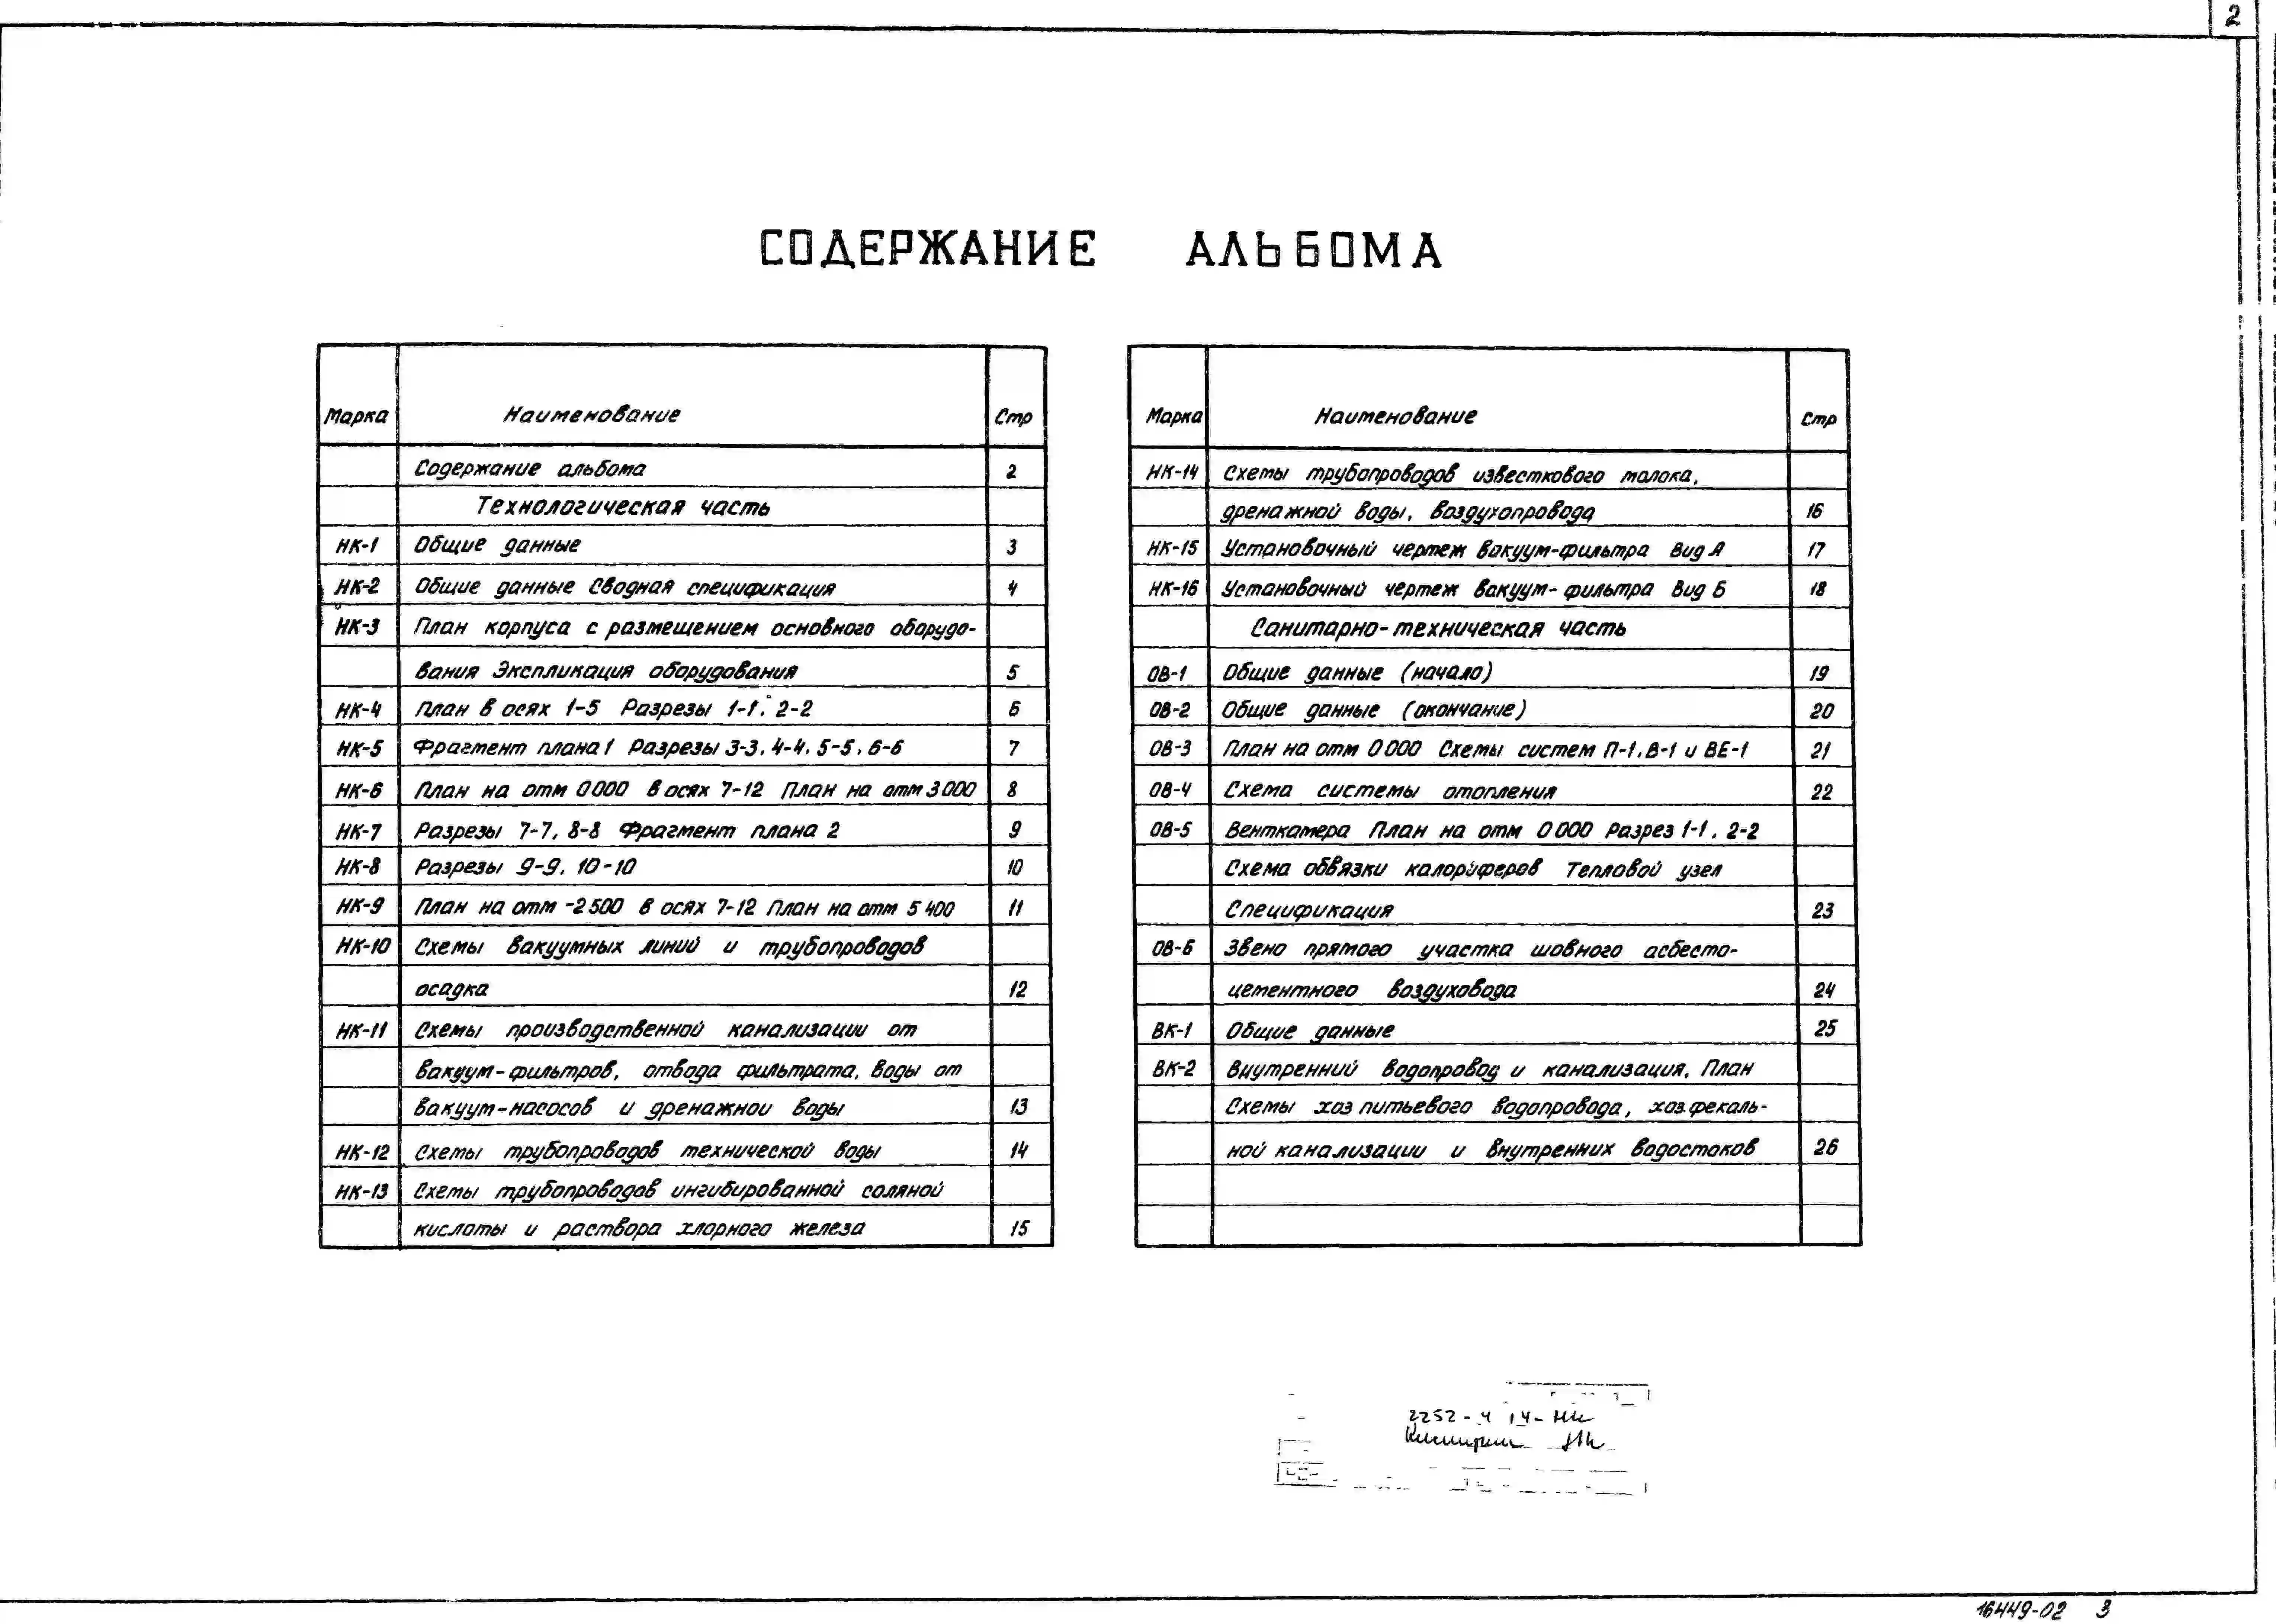 2
СОДЕРЖАНИЕ АЛЬБОМА
Марка Наименование Стр
Содержание альбома 2
Технологическая часть
НК-1 Общие данные 3
НК-2 Общие данные Сводная спецификация 4
НК-3 План корпуса с размещением основного оборудо-
вания Экспликация оборудования 5
НК-4 План в осях 1-5 Разрезы 1-1, 2-2 6
НК-5 Фрагмент плана 1 Разрезы 3-3, 4-4, 5-5, 6-6 7
НК-6 План на отм 0 000 в осях 7-12 План на отм 3 000 8
НК-7 Разрезы 7-7, 8-8 Фрагмент плана 2 9
НК-8 Разрезы 9-9, 10-10 10
НК-9 План на отм -2 500 в осях 7-12 План на отм 5 400 11
НК-10 Схемы вакуумных линий и трубопроводов
осадка 12
НК-11 Схемы производственной канализации от
вакуум-фильтров, отвода фильтрата, воды от
вакуум-насосов и дренажнои воды 13
НК-12 Схемы трубопроводов технической воды 14
НК-13 Схемы трубопроводов ингибированной соляной
кислоты и раствора хлорного железа 15
Марка Наименование Стр
НК-14 Схемы трубопроводов известкового молока,
дренажной воды, воздухопровода 16
НК-15 Установочный чертеж вакуум-фильтра Вид А 17
НК-16 Установочный чертеж вакуум-фильтра Вид Б 18
Санитарно-техническая часть
ОВ-1 Общие данные (начало) 19
ОВ-2 Общие данные (окончание) 20
ОВ-3 План на отм 0 000 Схемы систем П-1, В-1 и ВЕ-1 21
ОВ-4 Схема системы отопления 22
ОВ-5 Венткамера План на отм 0 000 Разрез 1-1, 2-2
Схема обвязки калориферов Тепловой узел
Спецификация 23
ОВ-6 Звено прямого участка шовного асбесто-
цементного воздуховода 24
ВК-1 Общие данные 25
ВК-2 Внутренний водопровод и канализация. План
Схемы хоз питьевого водопровода, хоз.фекаль-
ной канализации и внутренних водостоков 26
16449-02 3